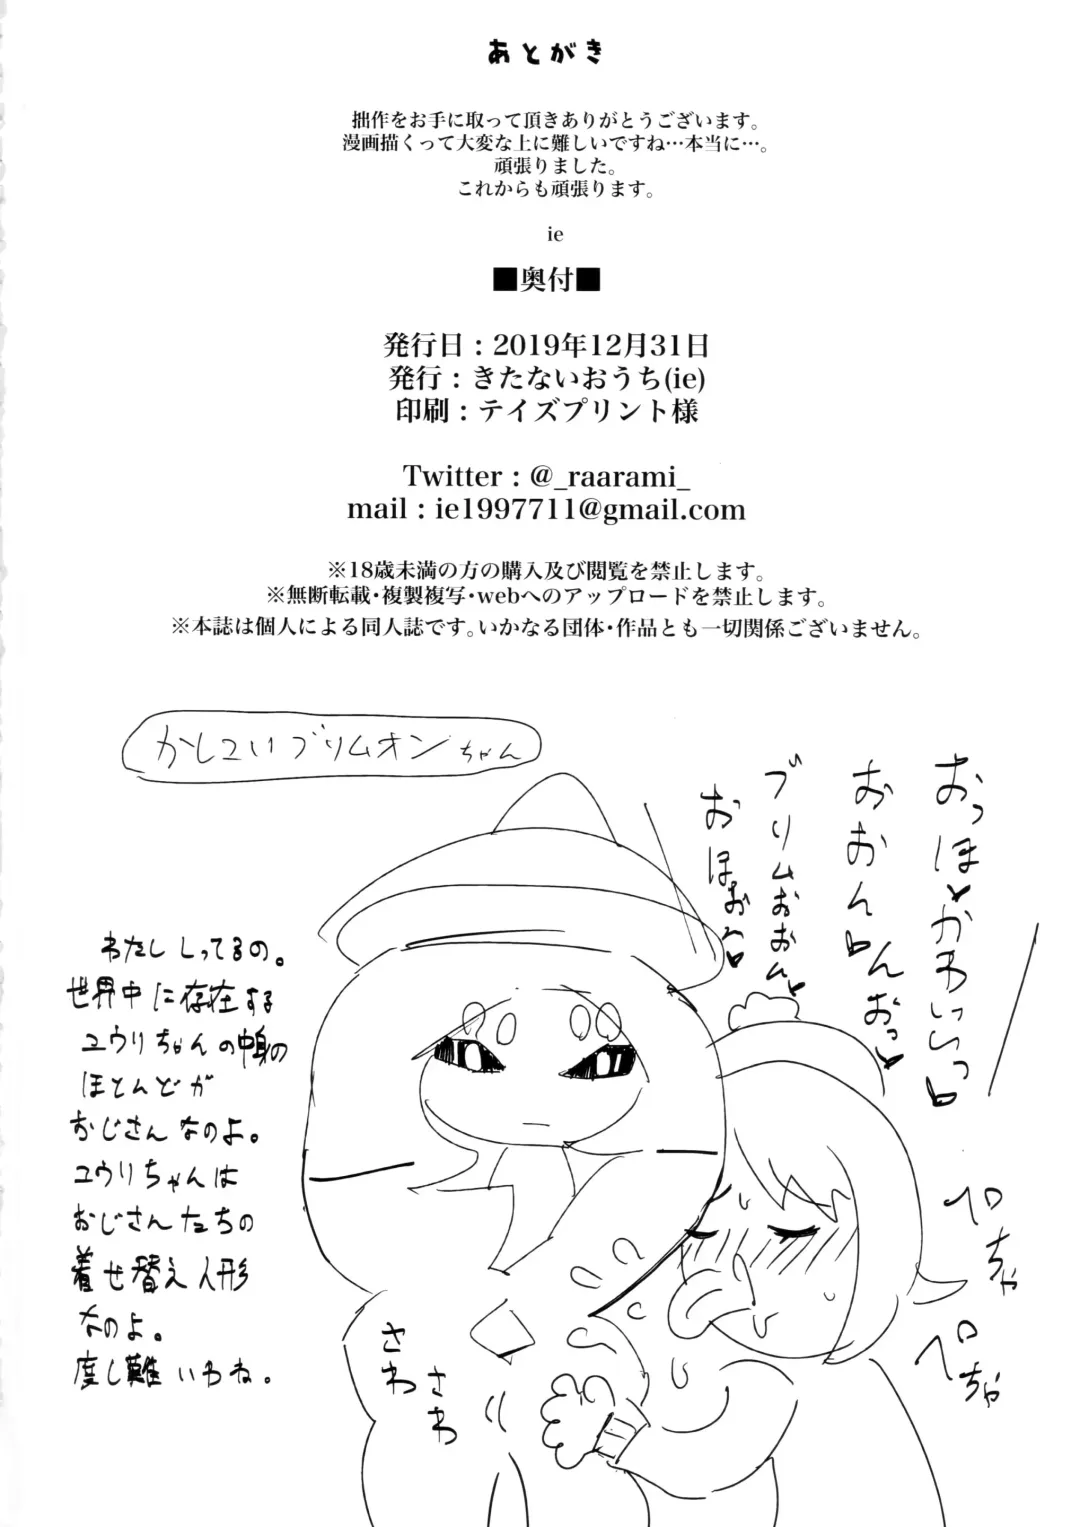 あとがき
拙作をお手に取って頂きありがとうございます。
漫画描くって大変な上に難しいですね…本当に…。
頑張りました。
これからも頑張ります。
ie
■奥付■
発行日：2019年12月31日
発行：きたないおうち(ie)
印刷：テイズプリント様
Twitter：@_raarami_
mail：ie1997711@gmail.com
※18歳未満の方の購入及び閲覧を禁止します。
※無断転載・複製複写・webへのアップロードを禁止します。
※本誌は個人による同人誌です。いかなる団体・作品とも一切関係ございません。
かしこいブリムオンちゃん
おっほ♥かわいいっ♥
おおん♥んおっ♥
ブリムおおん♥
おほぉお♥
わたししってるの。
世界中に存在する
ユウリちゃんの中身の
ほとんどが
おじさんなのよ。
ユウリちゃんは
おじさんたちの
着せ替え人形
なのよ。
度し難いわね。
ペロちゃ
ペロちゃ
さわ
さわ